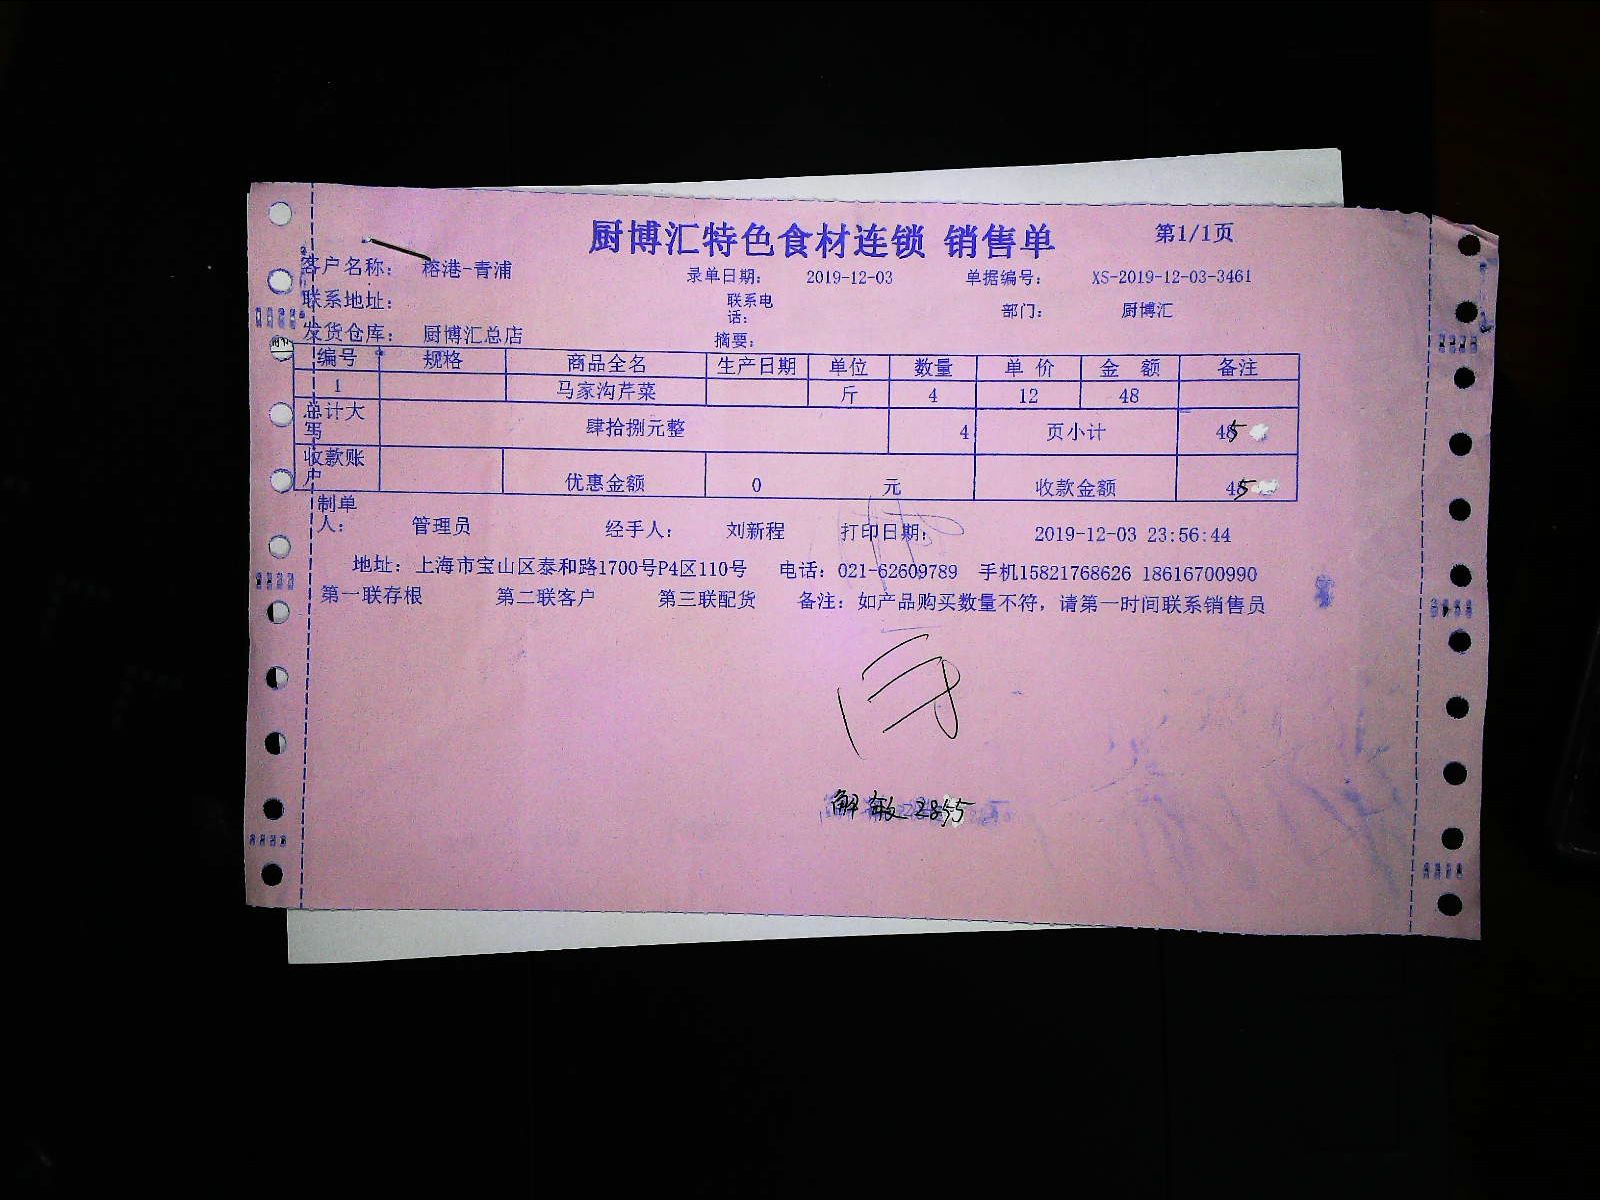 厨博汇特色食材连锁 销售单 第1/1页
客户名称: 榕港-青浦 录单日期: 2019-12-03 单据编号: XS-2019-12-03-3461
联系地址: 联系电话: 部门: 厨博汇
发货仓库: 厨博汇总店 摘要:
编号 规格 商品全名 生产日期 单位 数量 单价 金额 备注
1 马家沟芹菜 斤 4 12 48
总计大写 肆拾捌元整 4 页小计
收款账户 优惠金额 0 元 收款金额
制单人: 管理员 经手人: 刘新程 打印日期: 2019-12-03 23:56:44
地址: 上海市宝山区泰和路1700号P4区110号 电话: 021-62609789 手机15821768626 18616700990
第一联存根 第二联客户 第三联配货 备注: 如产品购买数量不符, 请第一时间联系销售员